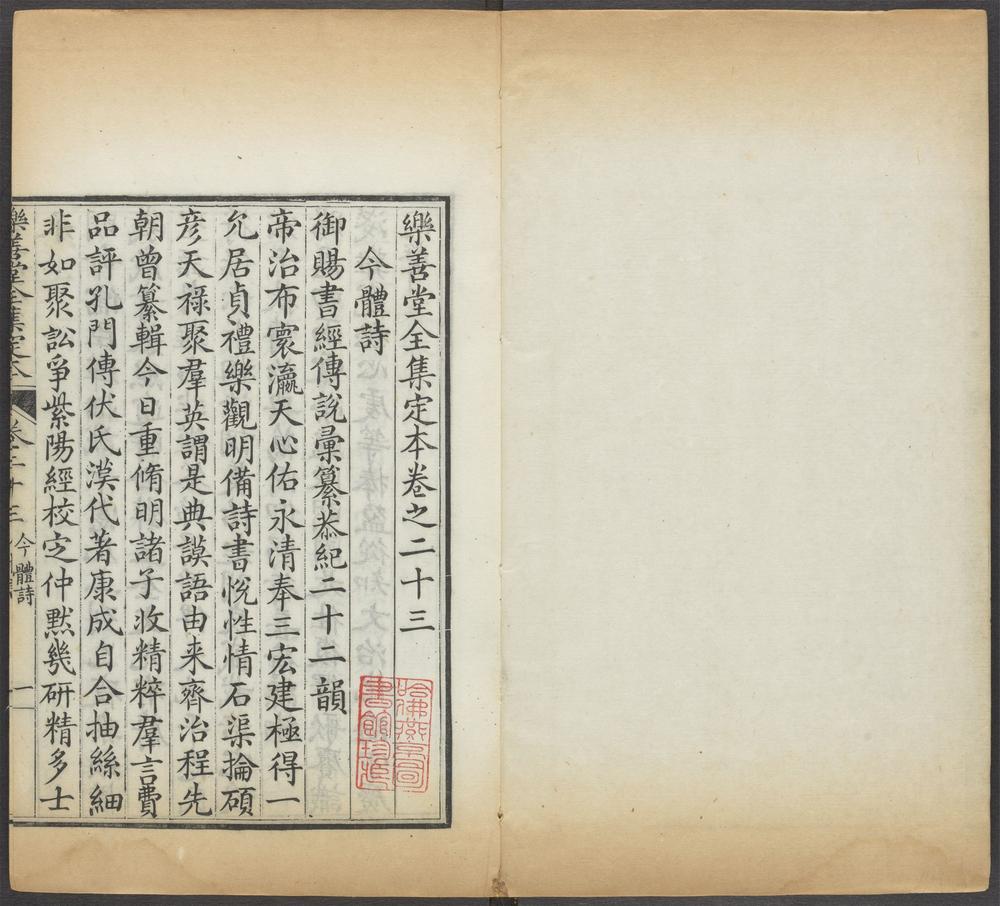 樂善堂全集定本卷之二十三
今體詩
御賜書經傳說彙纂恭紀二十二韻
帝治布寰瀛天心佑永清奉三宏建極得一
允居貞禮樂觀明備詩書悅性情石渠掄碩
彥天祿聚羣英謂是典謨語由来齊治程先
朝曾纂輯今日重脩明諸子收精粹羣言費
品評孔門傳伏氏漢代著康成自合抽絲細
非如聚訟爭紫陽經校定仲默幾研精多士
樂善堂全集定本
卷二十三
今體詩
一
哈佛燕京圖
書館珍藏